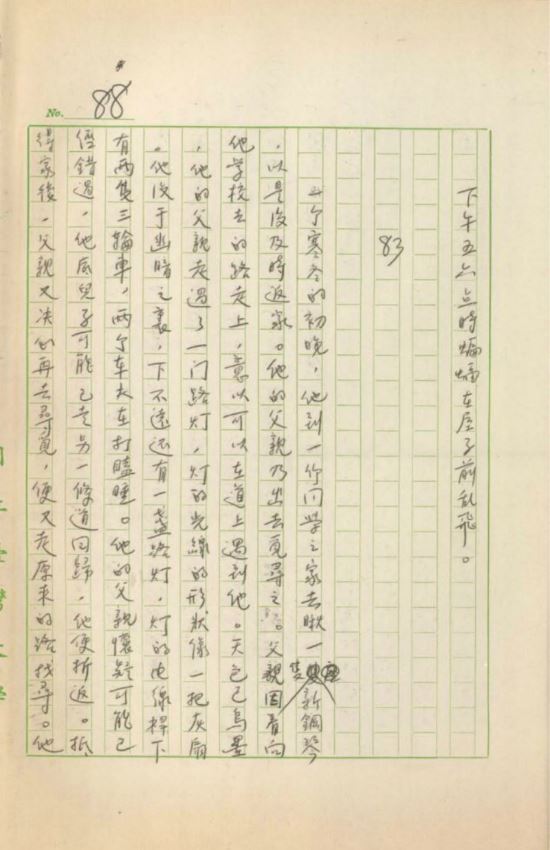 No. 88
下午五六点時蝙蝠在屋子前乱飛。
83
一个寒冬的初晚,他到一位同学之家去瞅一隻新鋼琴
,以是没及時返家。他的父親乃出去覓尋之。父親因着向
他学校去的路走上,意以可以在道上遇到他。天色已烏墨
,他的父親走過了一门路灯,灯的光線的形狀像一把灰扇
。他没于幽暗之裏,下不遠还有一盞路灯,灯的电線桿下
有两隻三輪車,两个车夫在打瞌睡。他的父親懷疑可能已
經錯過,他底兒子可能已走另一條道回歸,他便折返。抵
得家後,父親又决介再去尋覓,便又走原来的路找尋。他